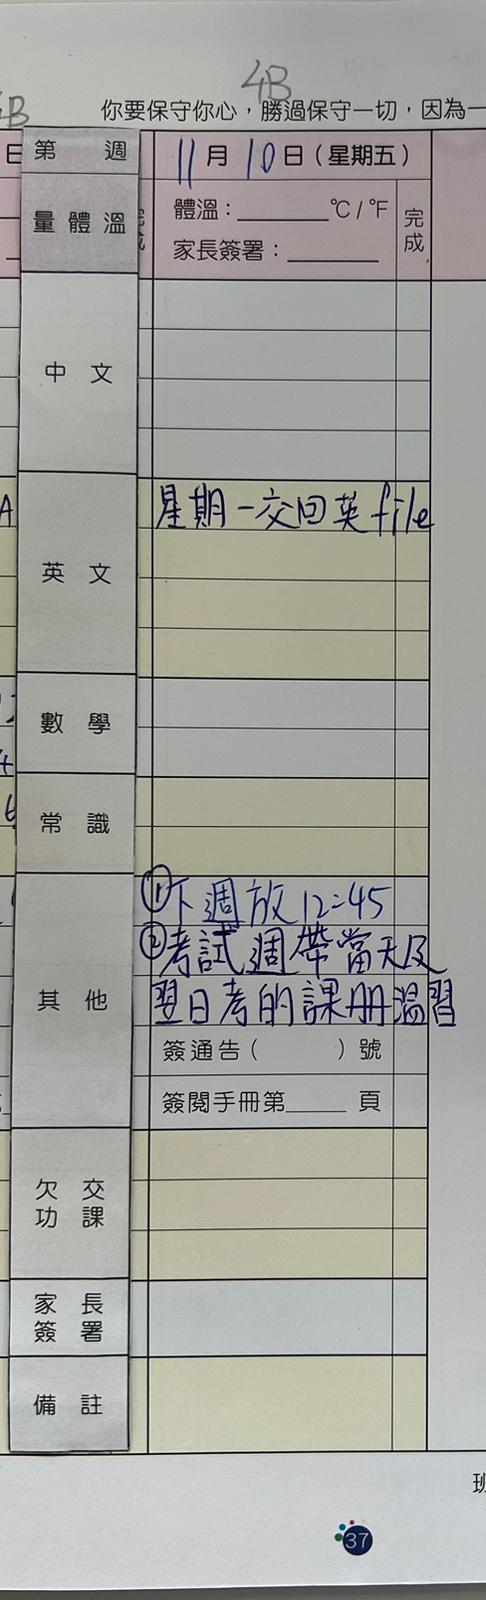 4B
你要保守你心，勝過保守一切，因為一
第 週
11月10日（星期五）
量體溫
體溫：______℃/℉
家長簽署：______
完成
中文
英文
星期一交回英file
數學
常識
其他
①下週放12:45
②考試週帶當天及
翌日考的課册溫習
簽通告（ ）號
簽閱手冊第____頁
欠交
功課
家長
簽署
備註
班
37